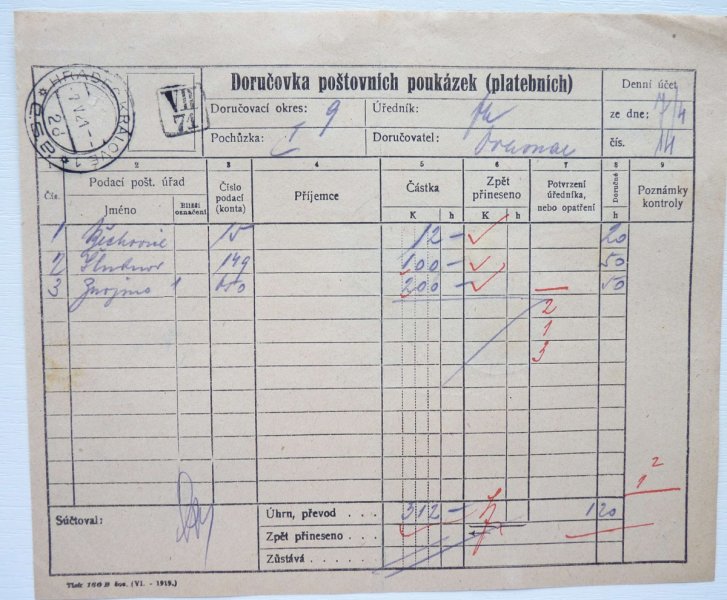 HRADEC KRÁLOVÉ 1
VII 21
* 8SD *
VB
71
Doručovka poštovních poukázek (platebních)
Doručovací okres: 9 Úředník:
Pochůzka: I Doručovatel:
Denní účet
ze dne: 7/4
čís. 14
Čís. 2 3 4 5 6 7 8 9
Podací pošt. úřad
Jméno Bližší označení
Číslo podací (konta)
Příjemce
Částka
K h
Zpět přineseno
K h
Potvrzení úředníka, nebo opatření
Doručné
h
Poznámky kontroly
1 15 12 – 20
2 149 100 – 50
3 Znojmo 1 200 – 50
2
1
3
2
1
Súčtoval:
Úhrn, převod . . . 312 – 120
Zpět přineseno . . .
Zůstává . . . . . .
Tisk 160 B čsv. (VI. - 1919.)